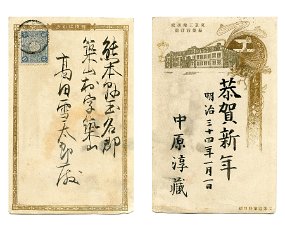 熊本縣玉名郡
築山村字築山
高田雪太郎殿
恭賀新年
明治三十四年一月一日
中原淳藏